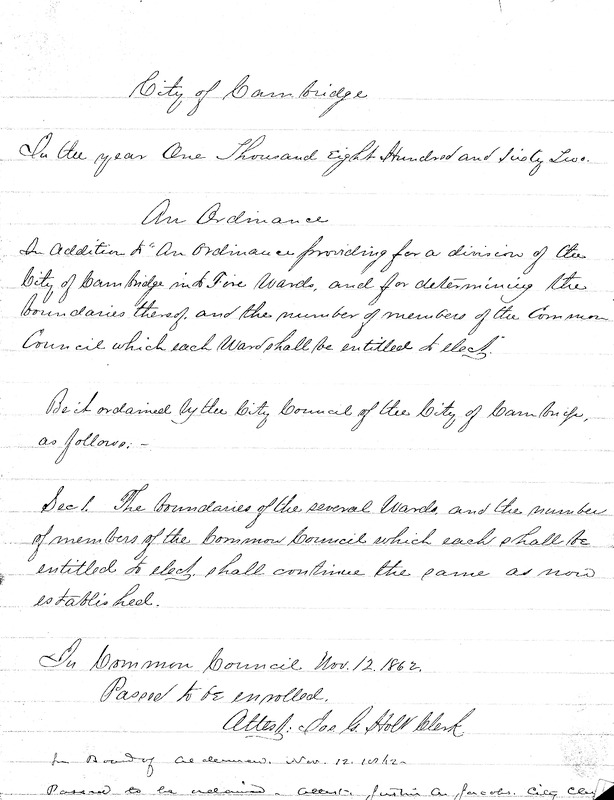 City of Cambridge
In the year One Thousand Eight Hundred and Sixty Two.
An Ordinance
In addition to "An Ordinance providing for a division of the
City of Cambridge into Five Wards, and for determining the
boundaries thereof, and the number of members of the Common
Council which each Ward shall be entitled to elect."
Be it ordained by the City Council of the City of Cambridge,
as follows: -
Sec 1. The boundaries of the several Wards, and the number
of members of the Common Council which each shall be
entitled to elect, shall continue the same as now
established.
In Common Council Nov. 12. 1862.
Passed to be enrolled.
Attest: Jos. G. Holt Clerk
In Board of Aldermen. Nov. 12. 1862.
Passed to be ordained. Attest. Justin A. Jacobs. City Cle